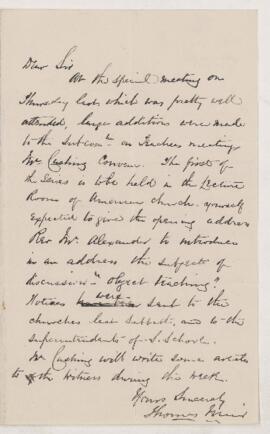 Dear Sir
At the special meeting on
Thursday last which was pretty well
attended, large additions were made
to the Subcom^ee on Teachers meetings
Mr Cushing Convener. The first of
the Series is to be held in the Lecture
Room of American church. yourself
expected to give the opening address
Rev Mr. Alexander to introduce
in an address the subject of
discussion "Object teaching"
Notices were sent to the
churches last Sabbath, and to the
superintendents of S. Schools.
Mr Cushing will write some articles
to the Witness during this week.
Yours Sincerely
Thomas